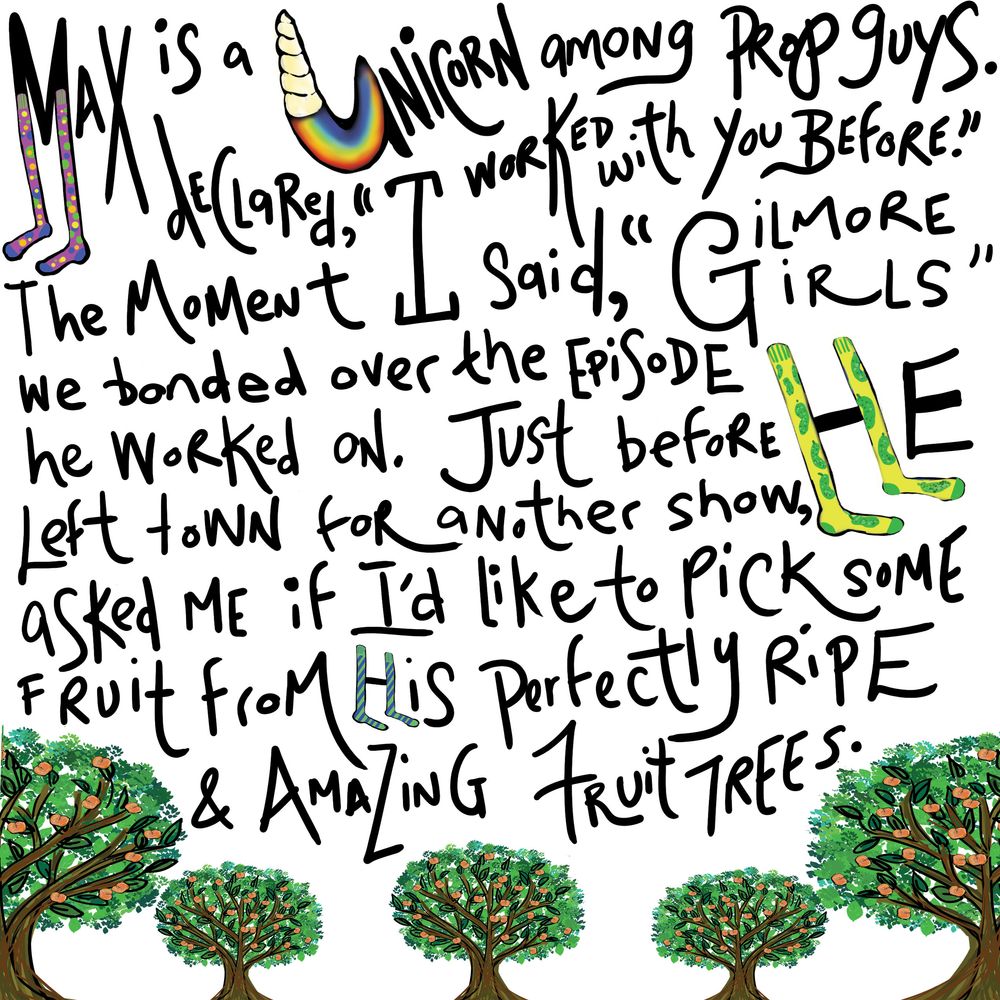 Max is a Unicorn among Prop guys.
declared, "I worked with you Before!"
The Moment I said, "Gilmore Girls"
we bonded over the Episode
he worked on. Just before He
Left town for another show,
asked me if I'd like to Pick some
Fruit from His Perfectly Ripe
& Amazing Fruit Trees.